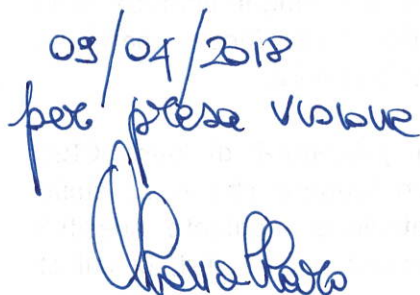 09/04/2018
per presa visione